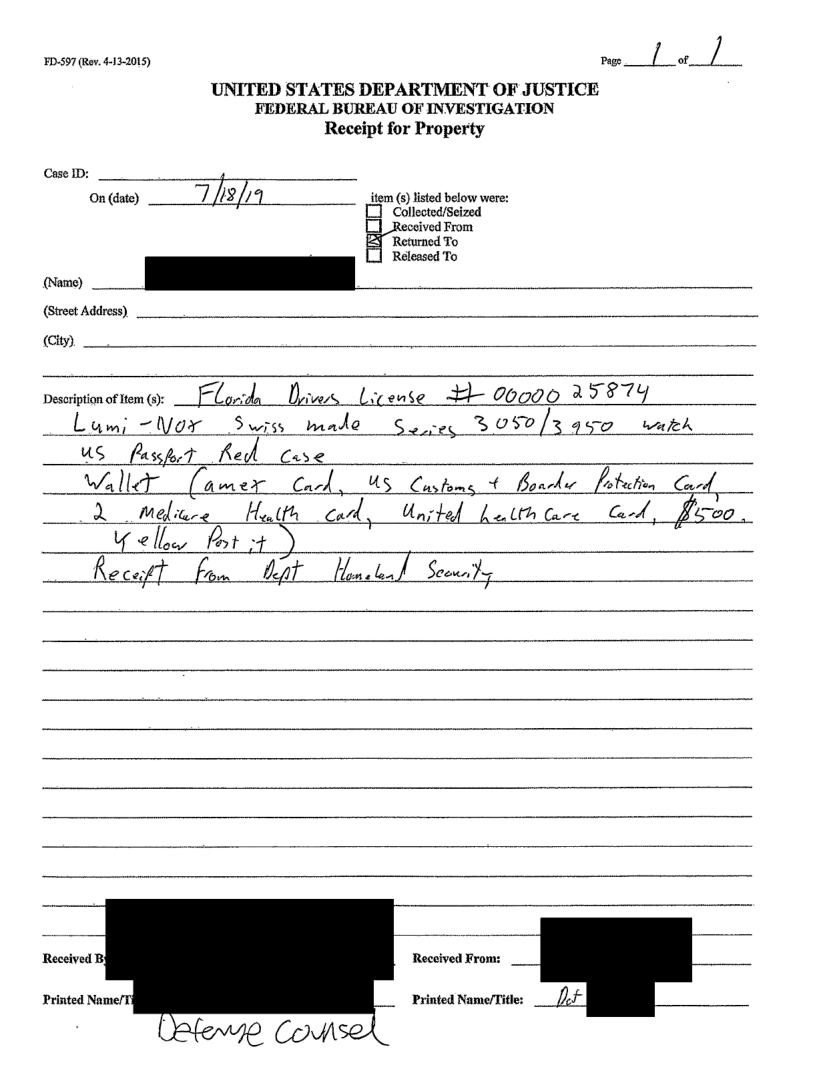 FD-597 (Rev. 4-13-2015)
Page 1 of 1
UNITED STATES DEPARTMENT OF JUSTICE
FEDERAL BUREAU OF INVESTIGATION
Receipt for Property
Case ID:
On (date) 7/18/19
item (s) listed below were:
Collected/Seized
Received From
Returned To
Released To
(Name)
(Street Address)
(City)
Description of Item (s): Florida Drivers License # 0000025874
Lumi-Nox Swiss made Series 3050/3950 watch
US Passport Red Case
Wallet (amex Card, US Customs + Boarder Protection Card,
2 Medicare Health card, United health Care Card, $500.
Yellow Post it)
Receipt from Dept Homeland Security
Received B
Received From:
Printed Name/Ti
Printed Name/Title: Det
Defense Counsel